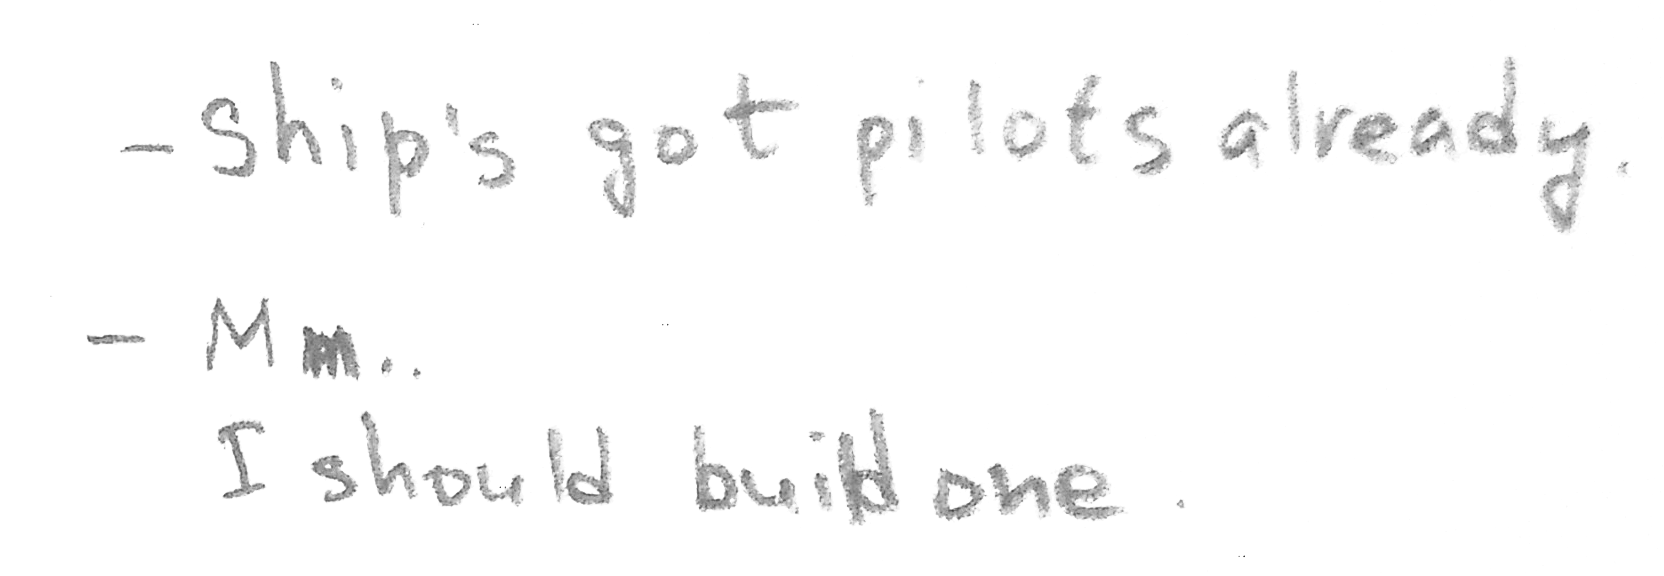 - Ship's got pilots already.
- Mm..
I should build one.